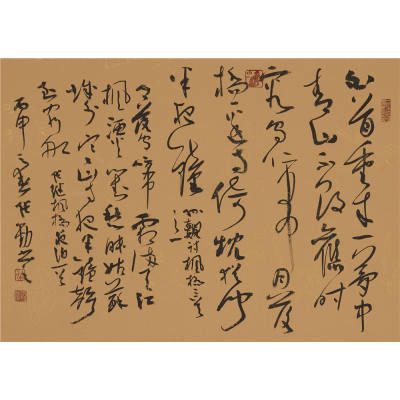 白首重来一梦中
青山不改旧时
容乌啼月落
桥边寺欹枕犹闻
半夜钟 孙觌诗枫桥三首之一
月落乌啼霜满天江
枫渔火对愁眠姑苏
城外寒山寺夜半钟声
到客船 张继枫桥夜泊一首
丙申